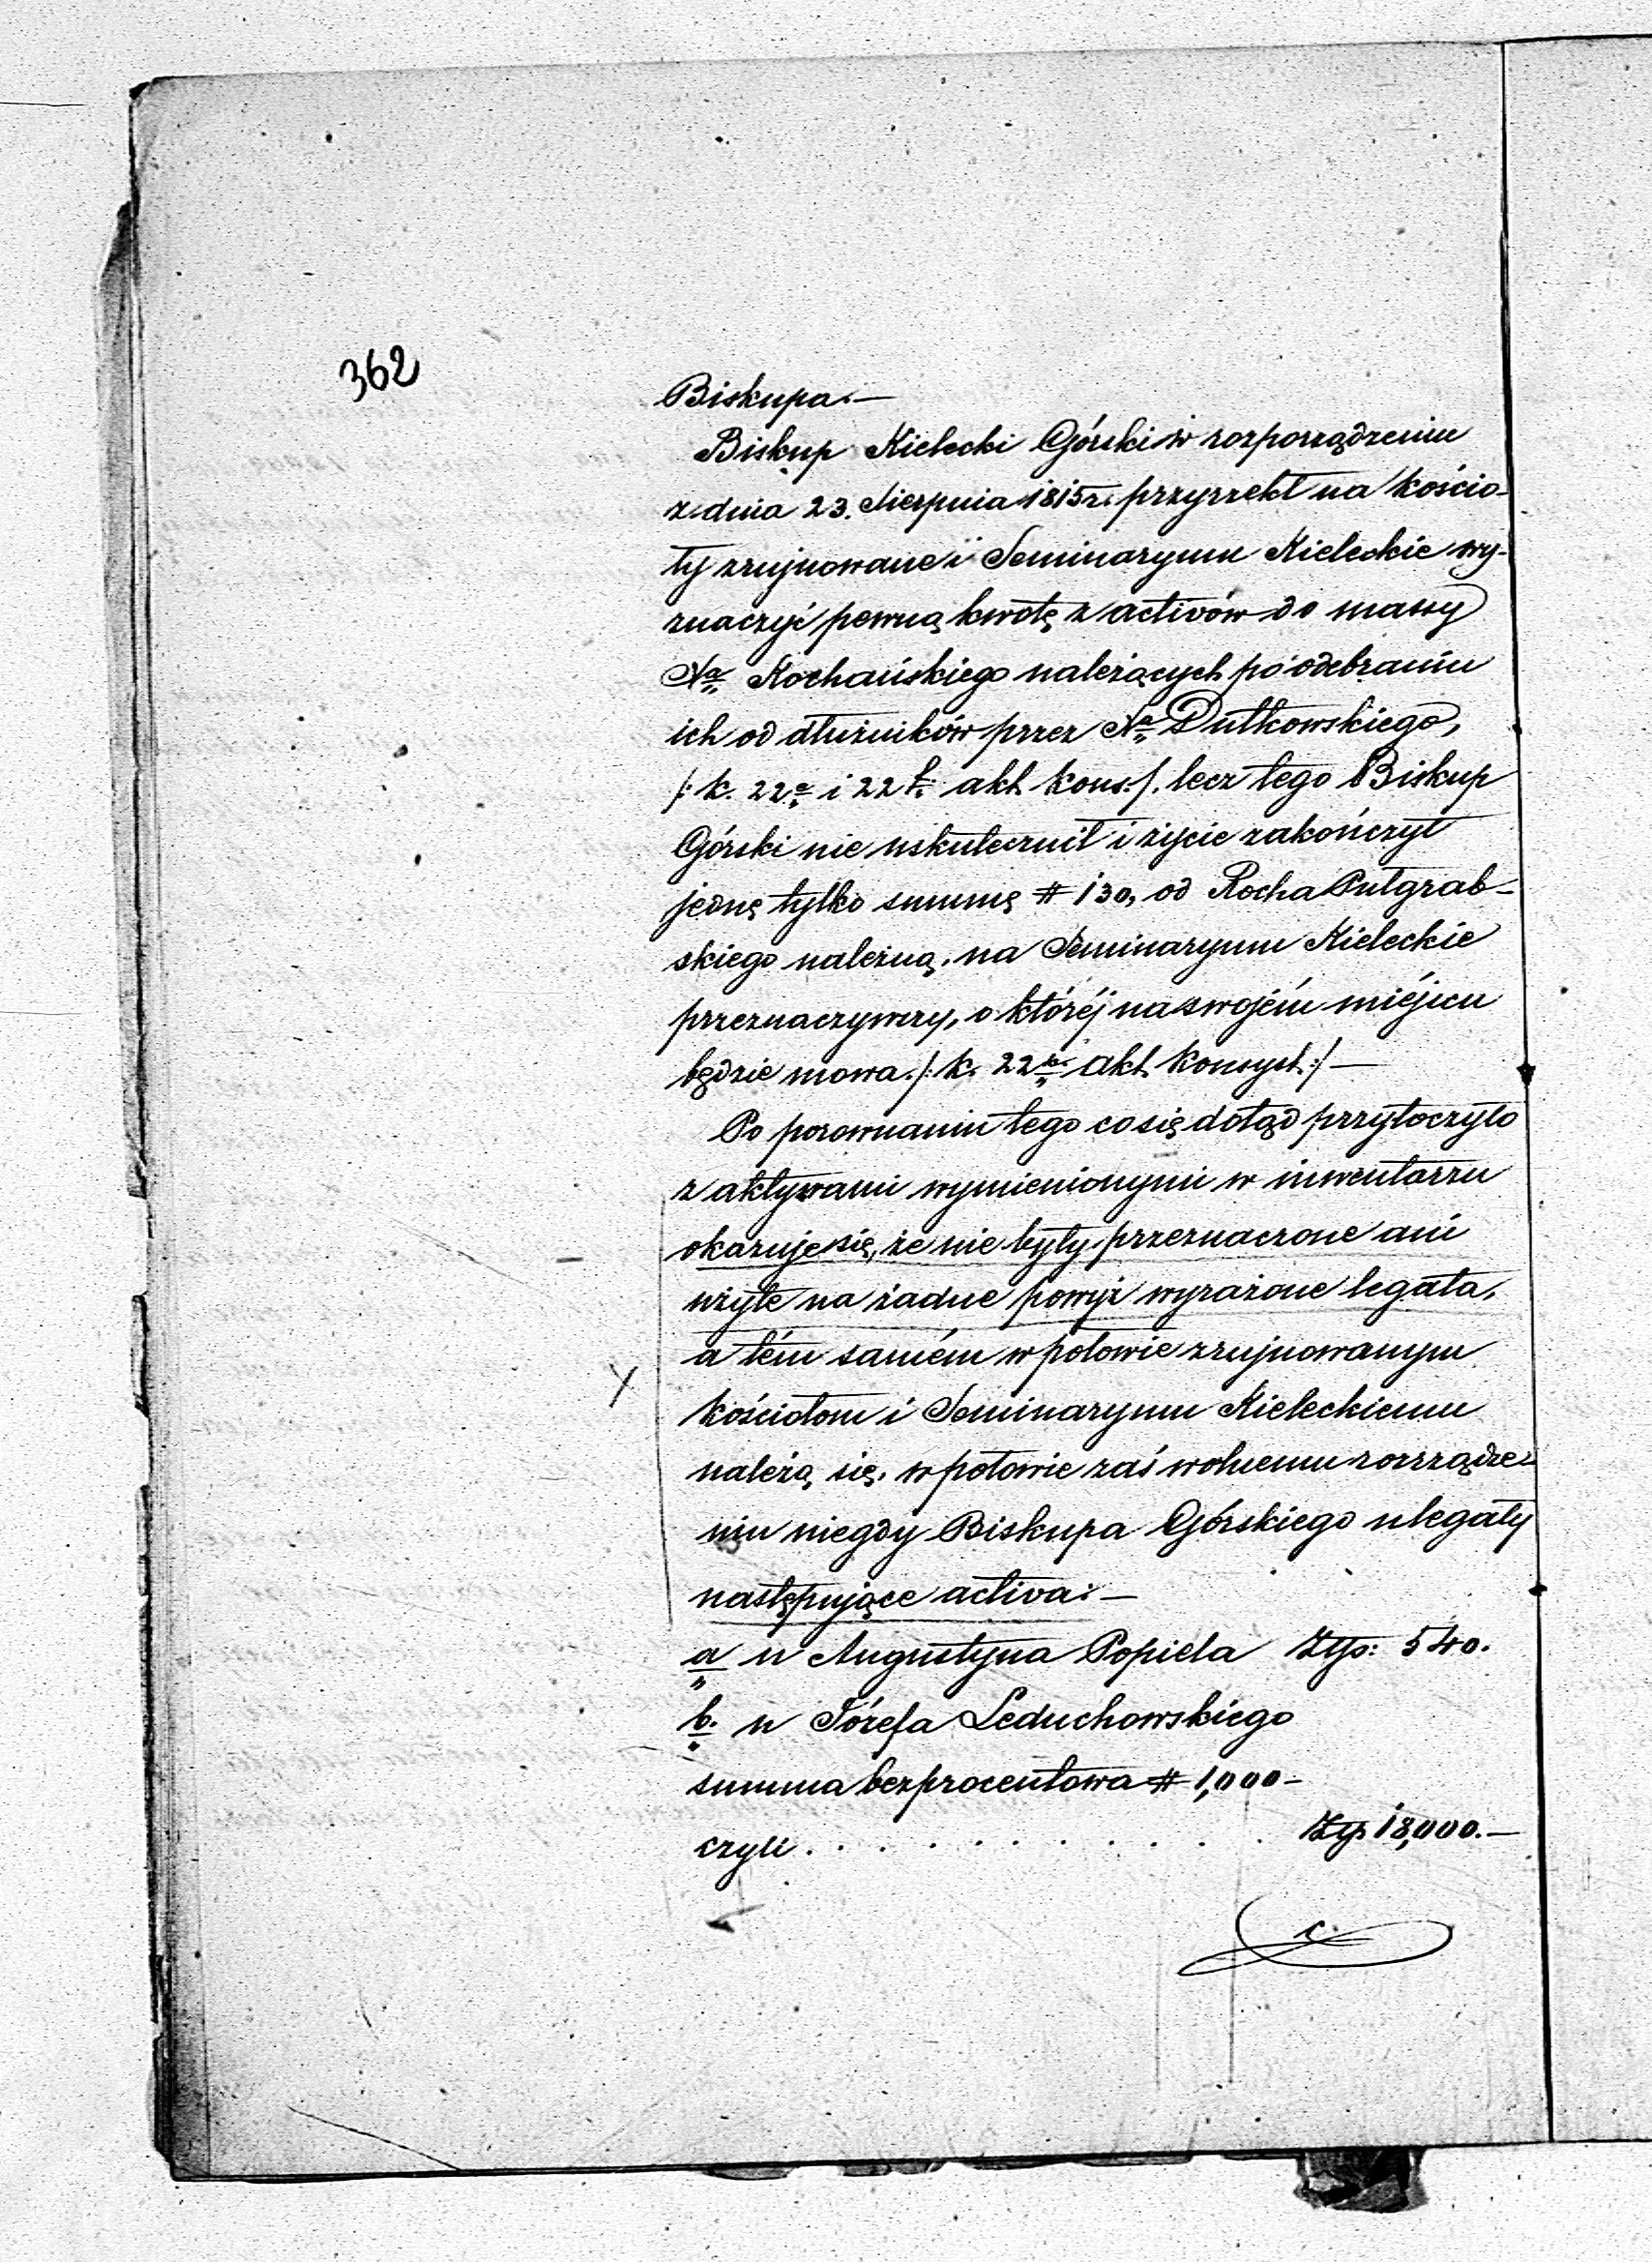 362
Biskupa.—
Biskup Kielecki Górski w rozporządzeniu
z dnia 23. Sierpnia 1815 r. przyrzekł na kościo-
ły zrujnowane i Seminaryum Kieleckie wy-
znaczyć pewną kwotę z activów do massy
Xa Kochańskiego należących po odebraniu
ich od dłużników przez Xa Dutkowskiego,
/: k. 22a i 22b akt kons:/. lecz tego Biskup
Górski nie uskutecznił i życie zakończył
jednę tylko summę # 130, od Rocha Putgrab-
skiego należną, na Seminaryum Kieleckie
przeznaczywszy, o któréj na swojém miéjscu
będzie mowa. /: k. 22b. akt. Konsyst:/—
Po porownaniu tego co się dotąd przytoczyło
z aktywami wymienionymi w inwentarzu
okazuje się, że nie były przeznaczone ani
użyte na żadne powyż wyrażone legata,
a tém samém w połowie zrujnowanym
kościołom i Seminaryum Kieleckiemu
należą się, w połowie zaś wolnemu rozrządze-
niu niegdy Biskupa Górskiego ulegały
następujące activa:—
a u Augustyna Popiela Złp: 540.
b. u Józefa Leduchowskiego
summa bezprocentowa # 1,000—
czyli . . . . . . . . . . . . Złp 18,000.—